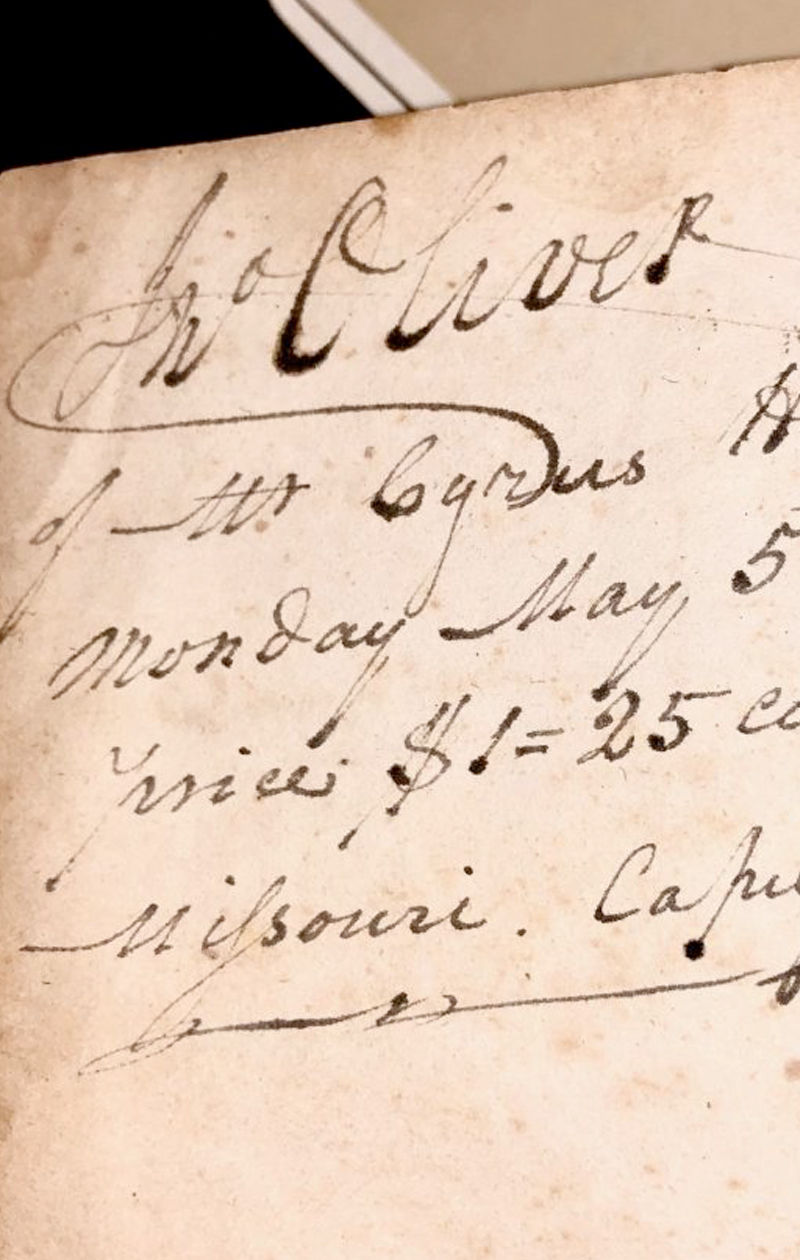 Jno Oliver
of Mr Cyrus H
Monday May 5
price $1=25 ce
Missouri. Cape